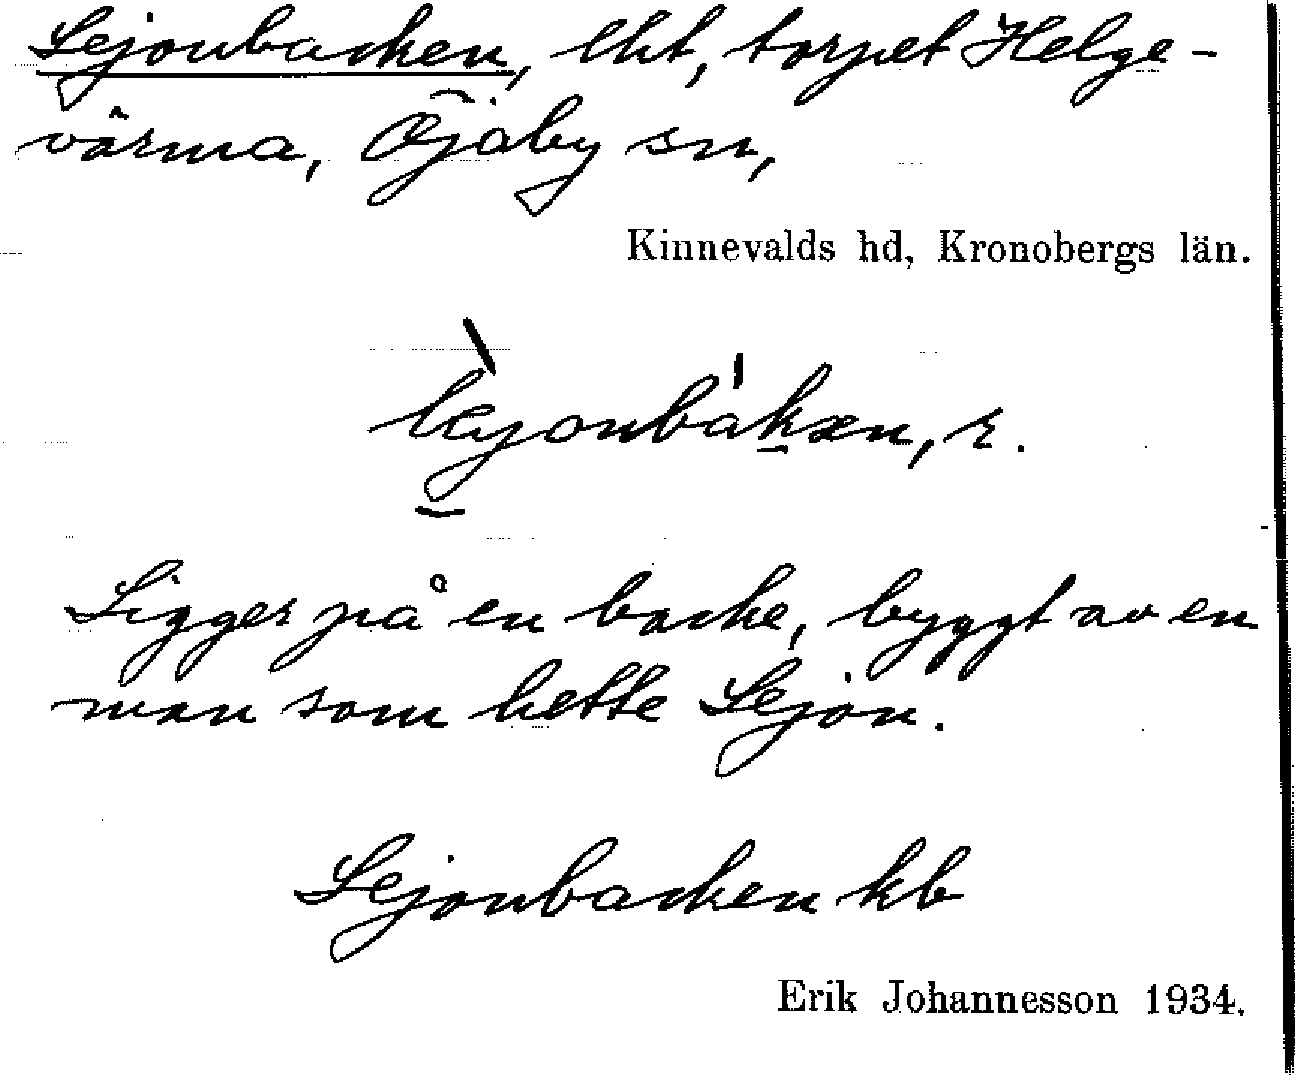 Lejonbacken, lht, torpet Helge-
värma, Öjaby sn,
Kinnevalds hd, Kronobergs län.
r.
Ligger på en backe, byggt av en
man som hette Lejon.
Lejonbacken kb
Erik Johannesson 1934.